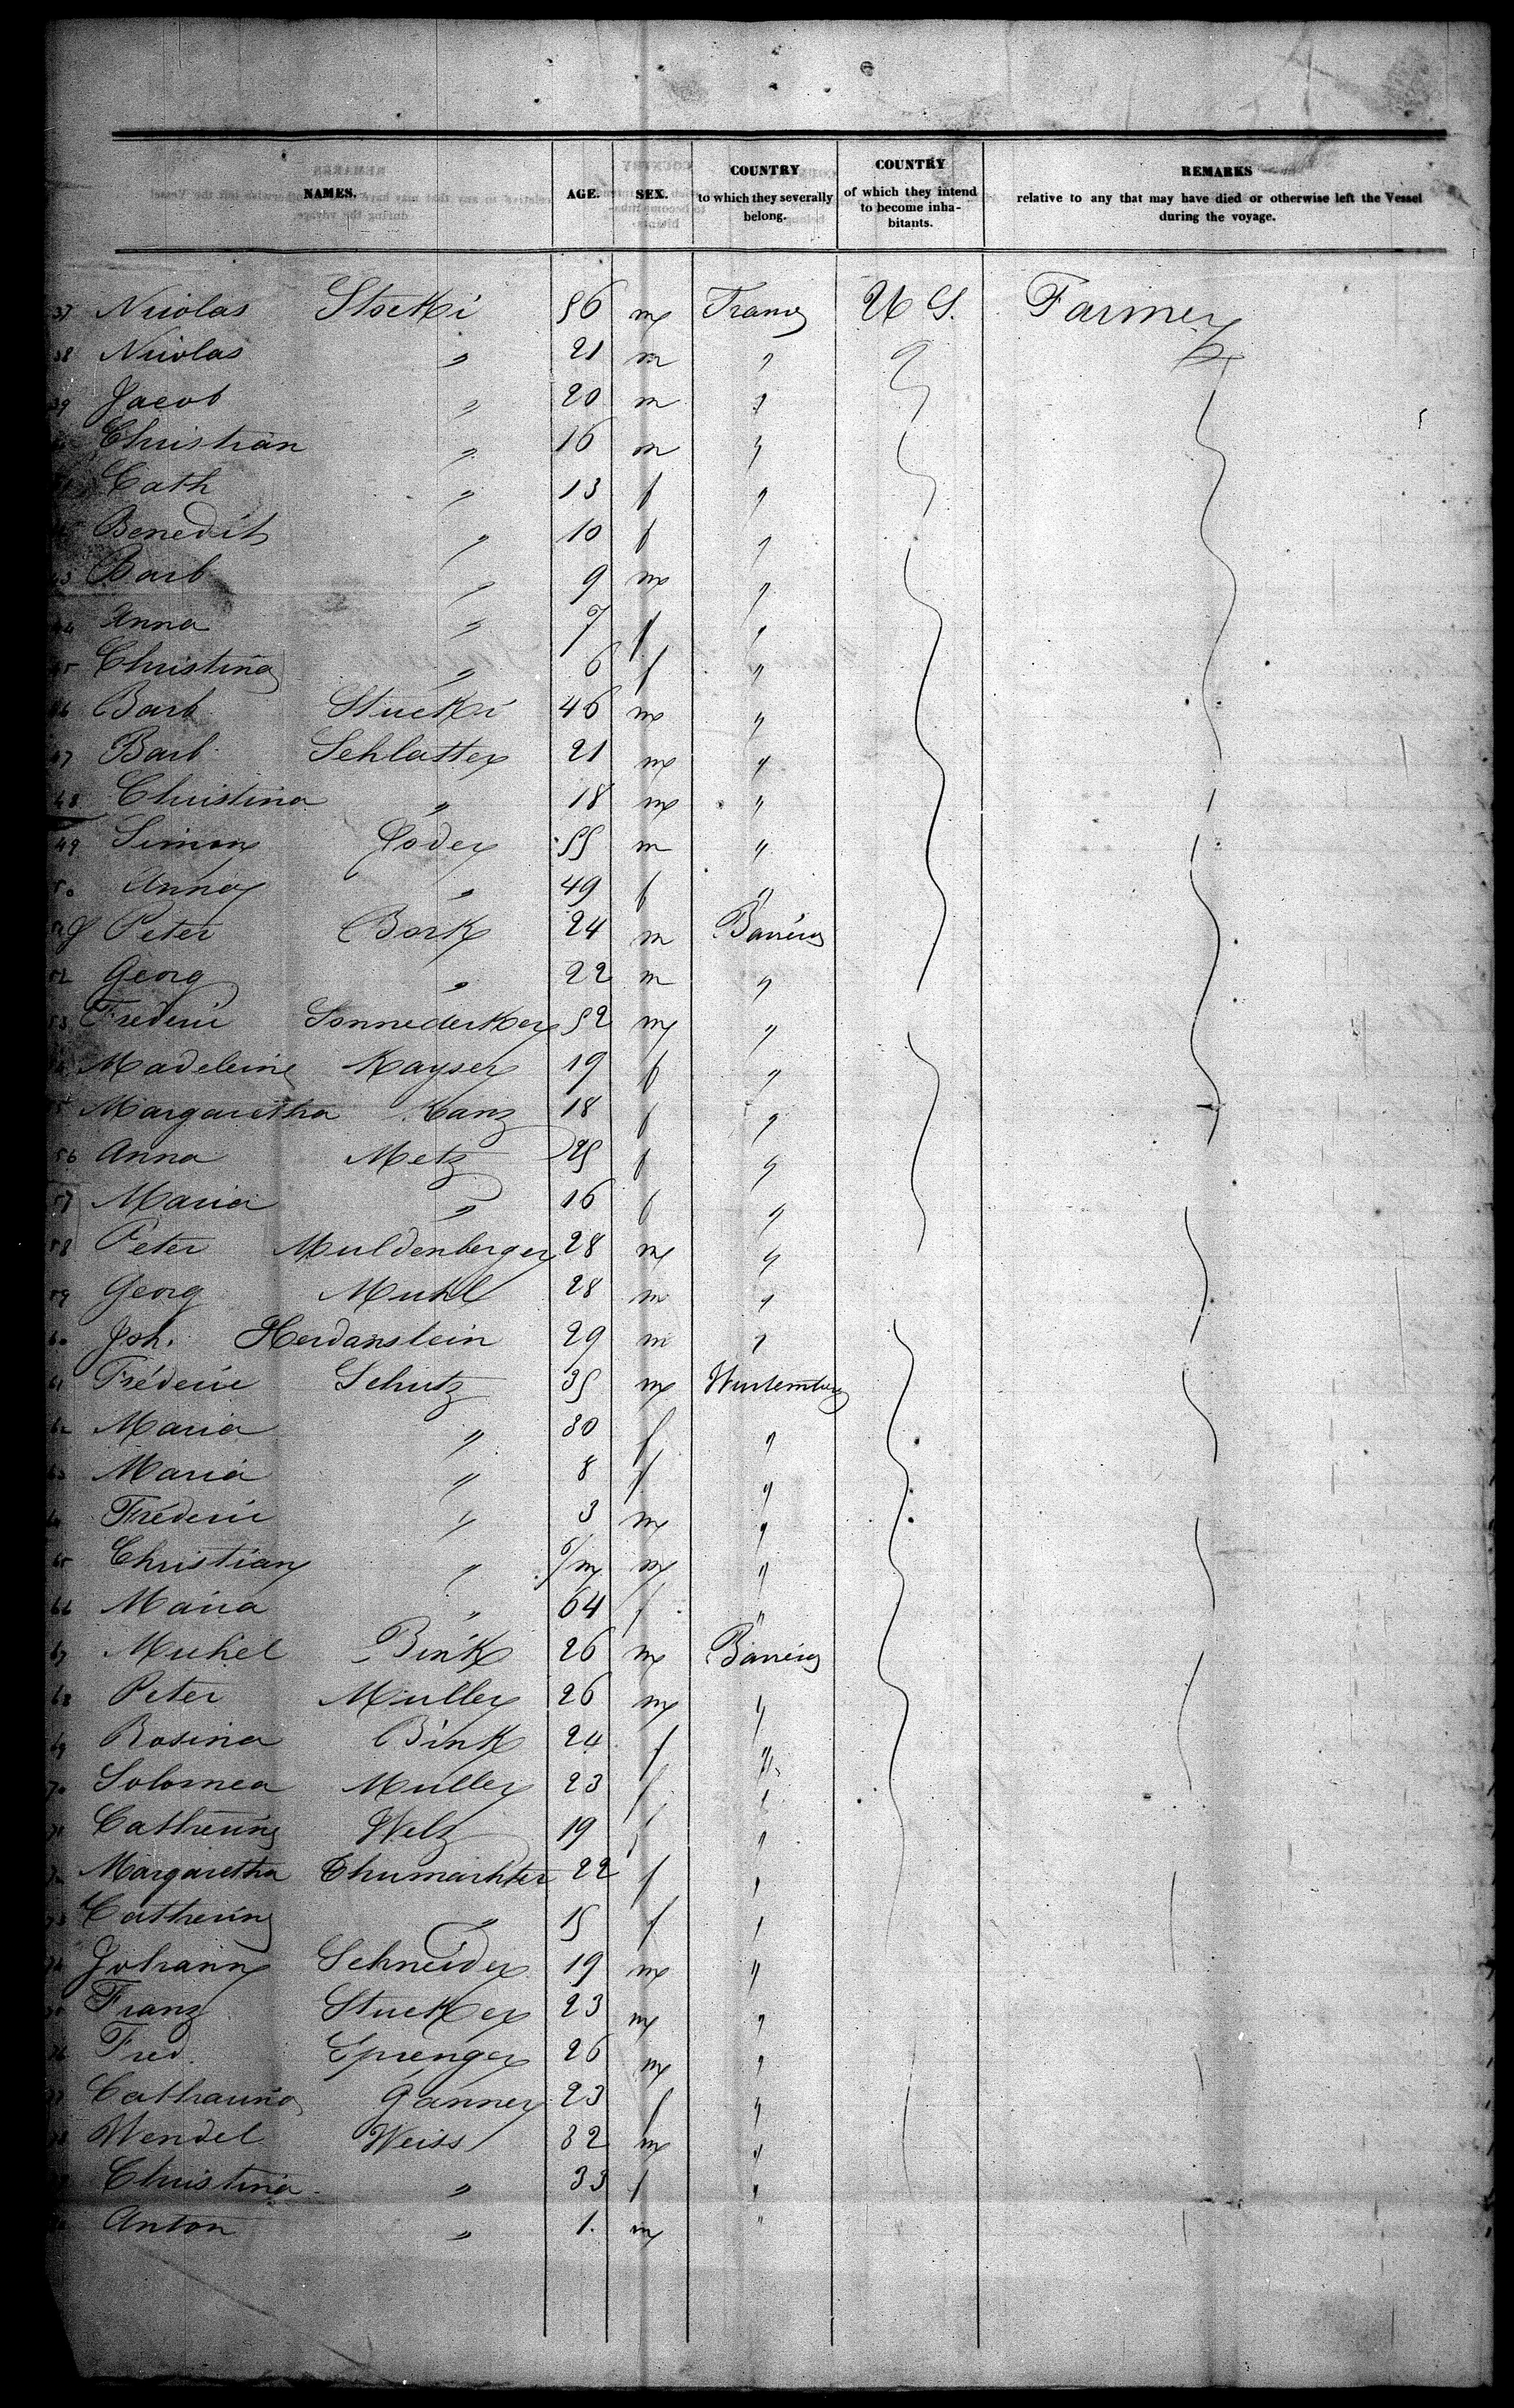 NAMES. AGE. SEX. COUNTRY to which they severally belong. COUNTRY of which they intend to become inhabitants. REMARKS relative to any that may have died or otherwise left the Vessel during the voyage.
37 Nicolas Stocki 56 m France U S. Farmer
38 Nicolas " 21 m "
39 Jacob " 20 m "
Christian " 16 m "
Cath " 13 f "
Benedit " 10 f "
43 Barb " 9 m "
44 Anna " 7 f "
45 Christina " 6 f "
46 Barb Stucki 46 m "
47 Barb Schlatter 21 m "
48 Christina " 18 m "
49 Simon Joder 55 m "
50 Anna " 49 f "
51 Peter Bork 24 m Baviere
52 Georg " 22 m "
53 Frederic Sonnederker 52 m "
54 Madeleine Kayser 19 f "
55 Margaretha Kanz 18 f "
56 Anna Metz 25 f "
57 Maria " 16 f "
58 Peter Muldenberger 28 m "
59 Georg Muhl 28 m "
60 Joh. Herdanstein 29 m "
61 Fréderic Schutz 35 m Wurtemberg
62 Maria " 30 f "
63 Maria " 8 f "
64 Fréderic " 3 m "
65 Christian " 6/m m "
66 Maria " 64 f "
67 Michel Bink 26 m Baviere
68 Peter Muller 26 m "
69 Rosina Bink 24 f "
70 Solomea Muller 23 f "
71 Catherine Welz 19 f "
72 Margaretha Chumachter 22 f "
73 Catherine " 15 f "
74 Johann Schneider 19 m "
75 Franz Stucker 23 m "
76 Fred. Sprenger 26 m "
77 Catharina Ganner 23 f "
78 Wendel Weiss 32 m "
Christina " 33 f "
Anton " 1. m "